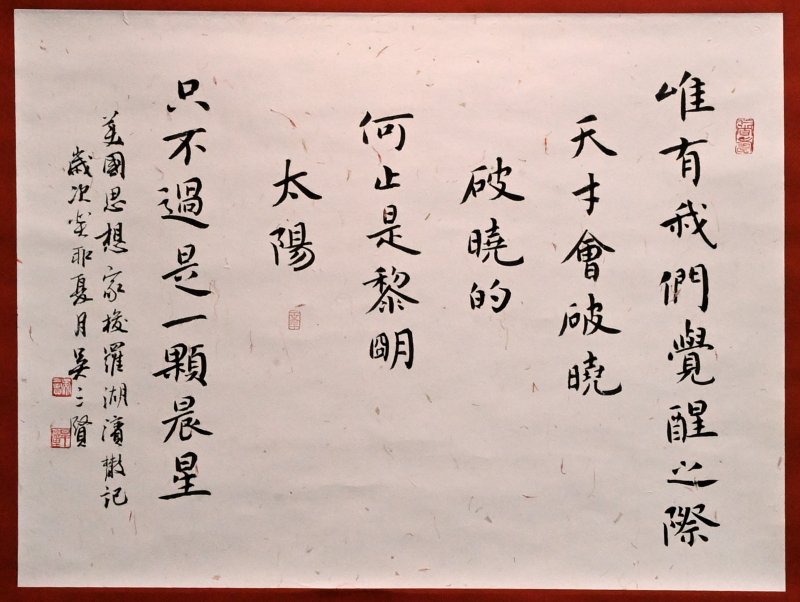 唯有我們覺醒之際
天才會破曉
破曉的
何止是黎明
太陽
只不過是一顆晨星
美國思想家梭羅湖濱散記
歲次癸卯夏月吳二賢